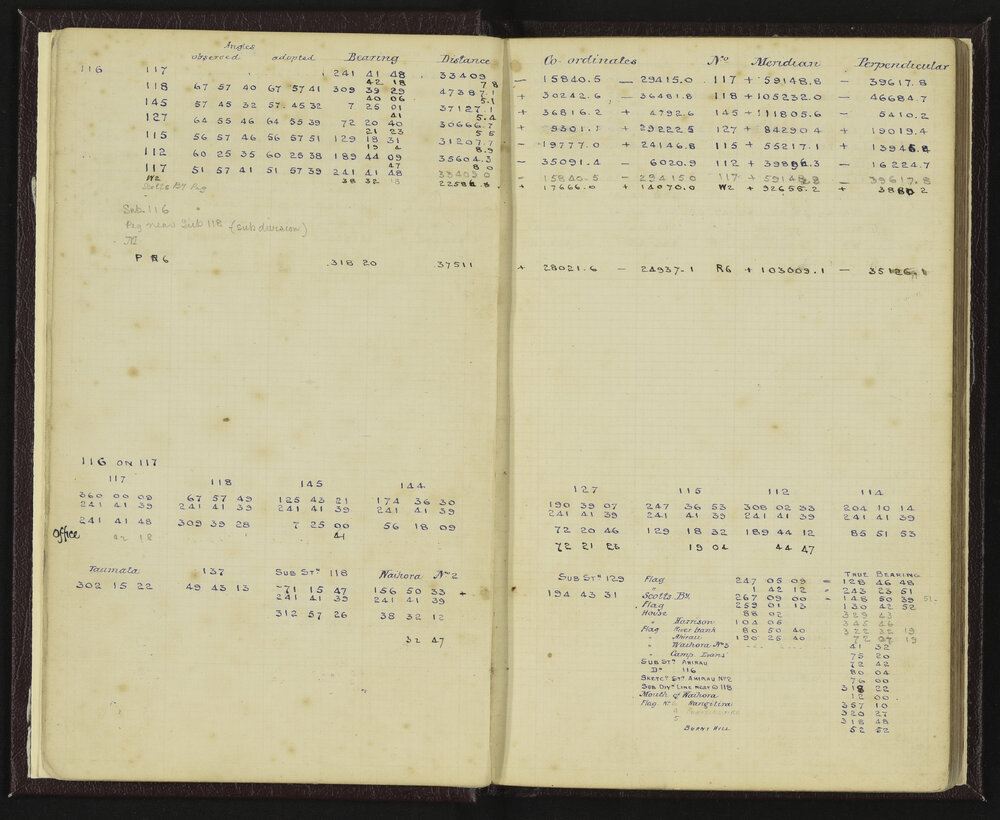 Angles
observed adopted Bearing Distance
116 117 241 41 48 33409
42 18 7 8
118 67 57 40 67 57 41 309 39 29 47387.1
40 06 5.1
145 57 45 32 57.45 32 7 25 01 37127.1
41 5.4
127 64 55 46 64 55 39 72 20 40 30666.7
21 23 5 5
115 56 57 46 56 57 51 129 18 31 31207.7
19 4 8.9
112 60 25 35 60 25 38 189 44 09 35604.3
47 8 0
117 51 57 41 51 57 39 241 41 48 33409 0
W2 38 32 18 22586.8
Scotts By Peg
Sub. 116
Peg near Sub 118 (subdivision)
M
P R6 318 20 37511
116 ON 117
117 118 145 144
360 00 09 67 57 49 125 43 21 174 36 30
241 41 39 241 41 39 241 41 39 241 41 39
241 41 48 309 39 28 7 25 00 56 18 09
Office 42 18 41
Taumata 137 SUB STN 118 Waihora No 2
302 15 22 49 43 13 71 15 47 156 50 33 +
241 41 39 241 41 39
312 57 26 38 32 12
32 47
Co-ordinates No Meridian Perpendicular
− 15840.5 − 29415.0 117 + 59148.8 − 39617.8
+ 30242.6 − 36481.8 118 + 105232.0 − 46684.7
+ 36816.2 + 4792.6 145 + 111805.6 − 5410.2
+ 9301.1 + 29222.5 127 + 84290 4 + 19019.4
− 19777.0 + 24146.8 115 + 55217.1 + 13945.8
− 35091.4 − 6020.9 112 + 39896.3 − 16224.7
− 15840.5 − 29415 0 117 + 59148.8 − 39617.8
+ 17666.0 + 14070.0 W2 + 92655.2 + 3880 2
+ 28021.6 − 24937.1 R6 + 103009.1 − 35126.1
127 115 112 114
190 39 07 247 36 53 308 02 33 204 10 14
241 41 39 241 41 39 241 41 39 241 41 39
72 20 46 129 18 32 189 44 12 85 51 53
72 21 23 19 04 44 47
TRUE BEARING
SUB STN 129 Flag 247 05 09 = 128 46 48
194 43 31 1 42 12 = 243 23 51
Scotts By. 267 09 00 = 148 50 39 51
Flag 259 01 13 130 42 52
House 88 02 329 43
" Harrison 104 05 345 46
Flag River bank 80 50 40 322 32 19
" Ahirau 190 25 40 72 07 19
" Waihora No 3 41 32
" Camp Evans 75 20
SUB STN AHIRAU 72 42
Do 116 80 04
SKETCH STN AHIRAU No 2 76 00
SUB DIVN LINE NEAR ⊙ 118 318 22
Mouth of Waihora 12 00
Flag No 6 Rangitira 357 10
4 320 27
5 318 48
BURNT HILL 52 52